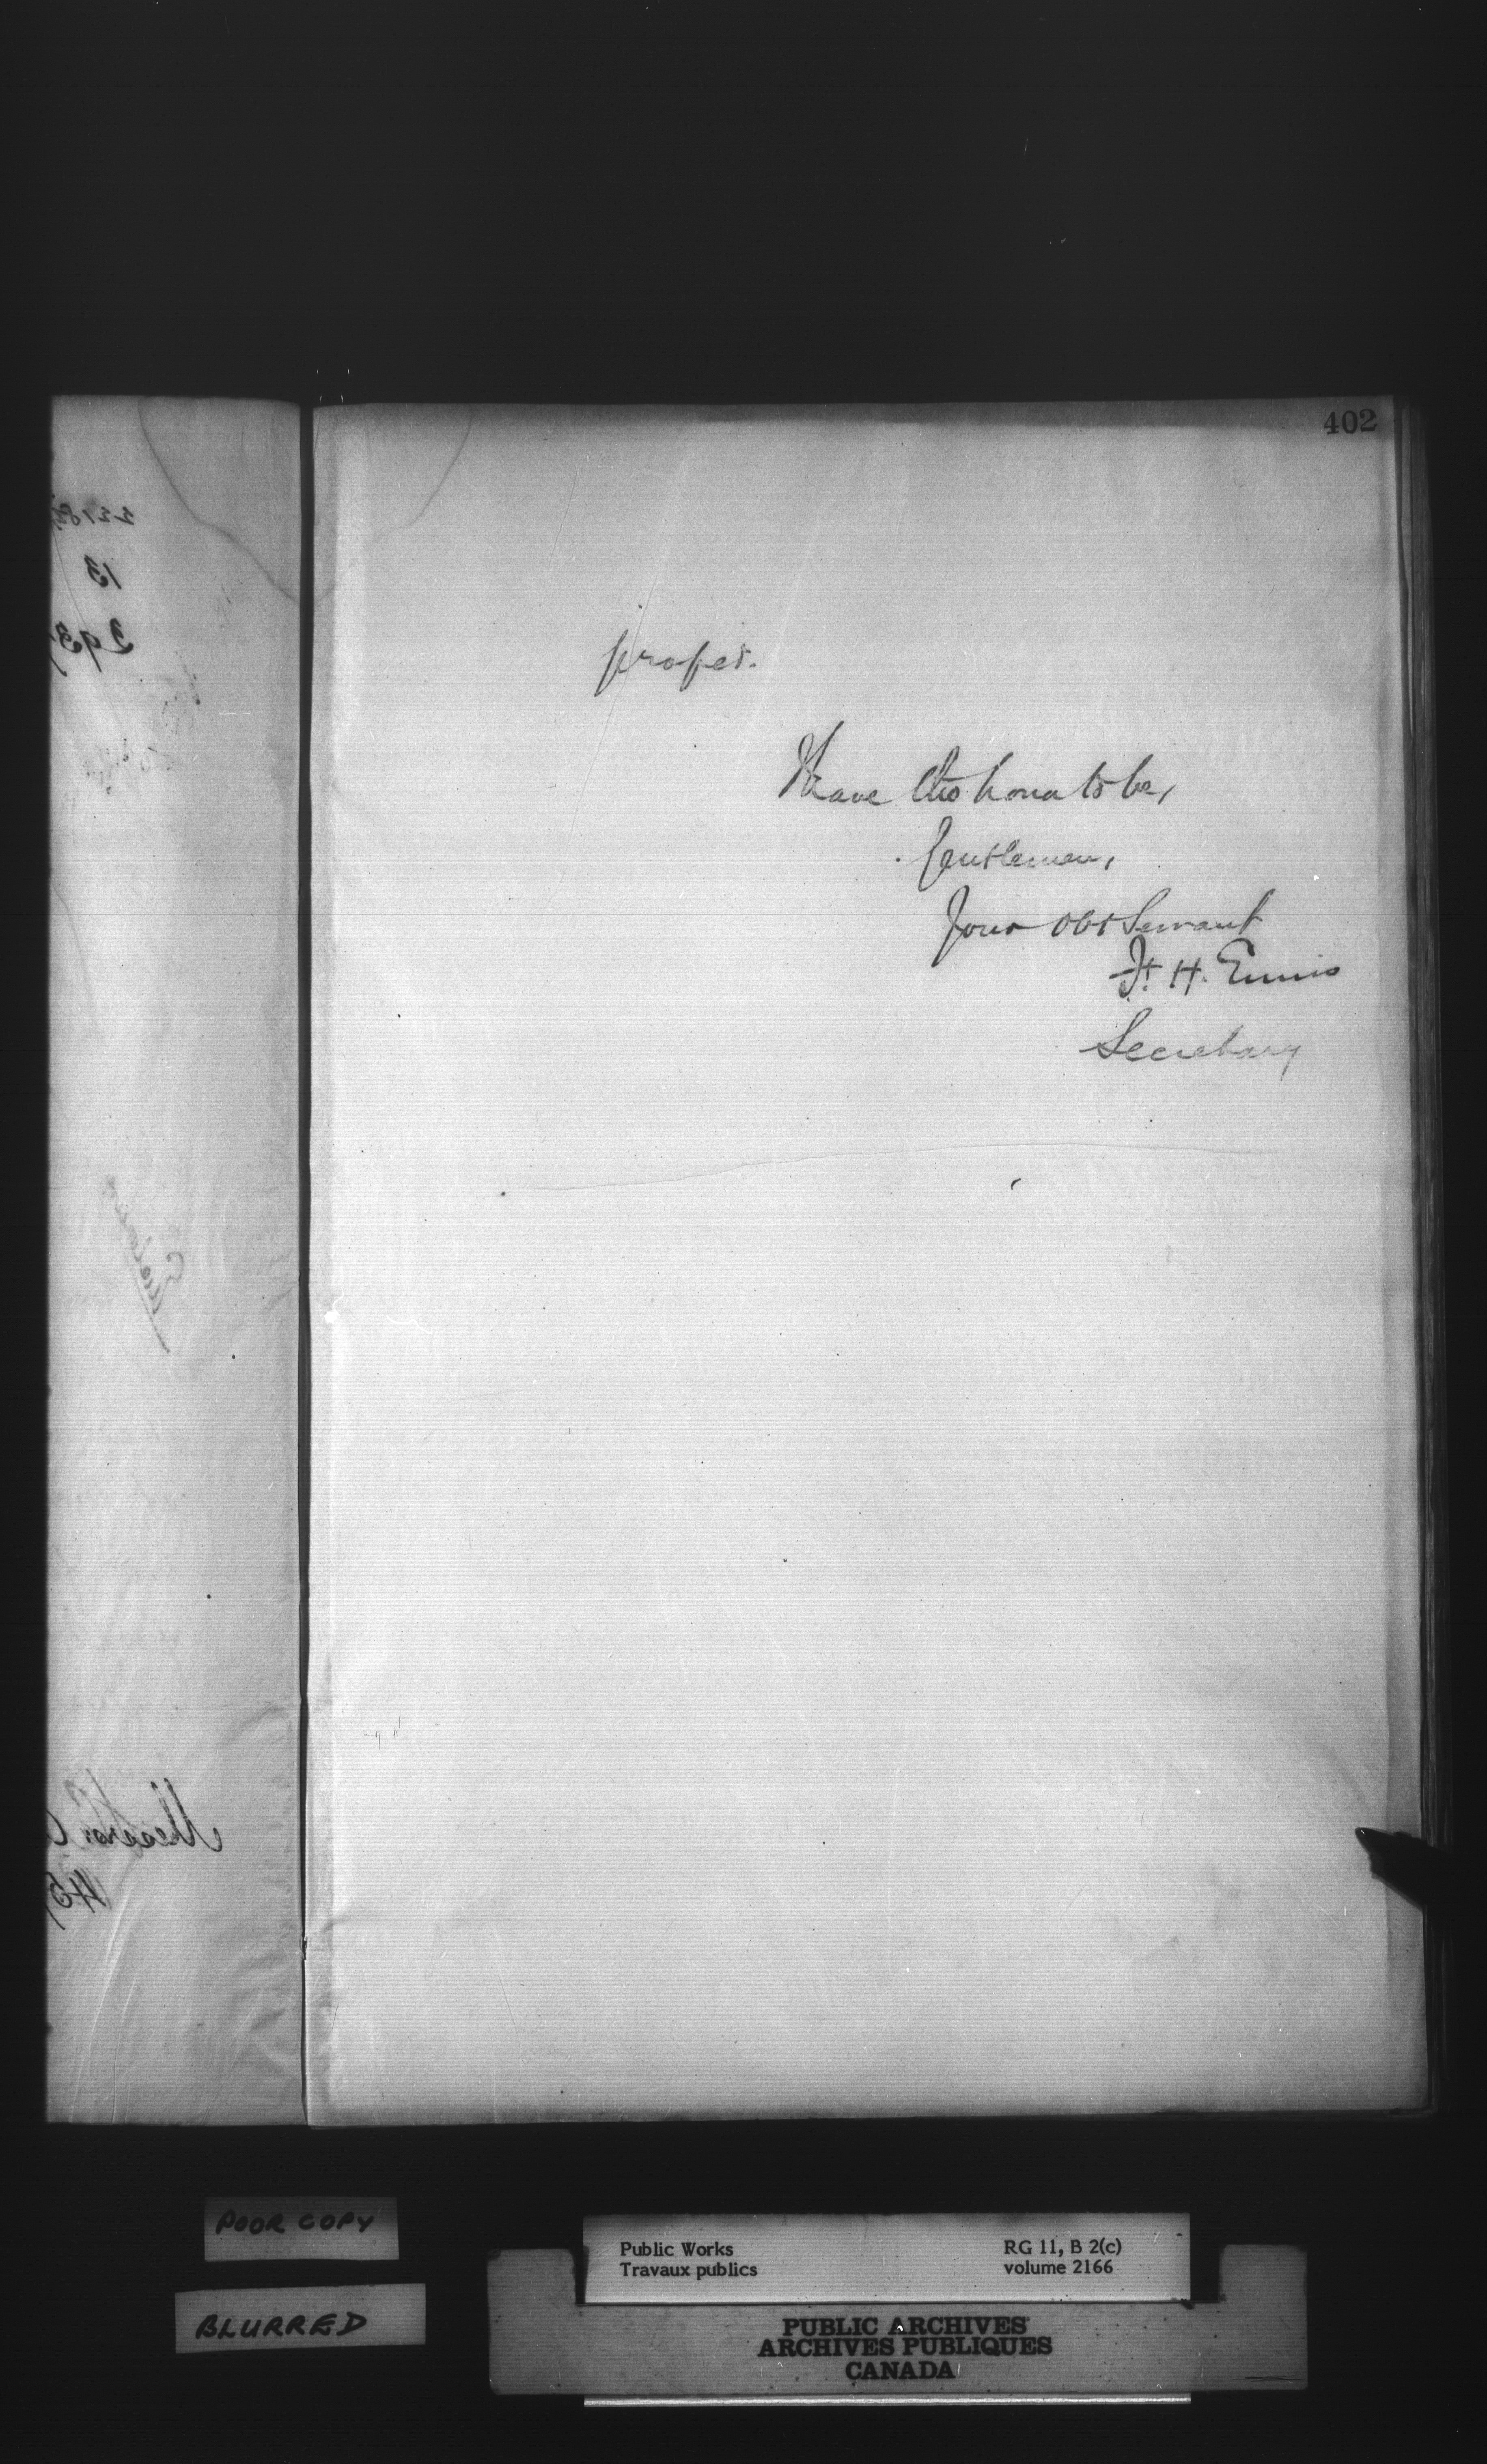 402
proper.
I have the honor to be,
Gentlemen,
Your obt Servant
F. H. Ennis
Secretary
POOR COPY
BLURRED
Public Works
Travaux publics
RG 11, B 2(c)
volume 2166
PUBLIC ARCHIVES
ARCHIVES PUBLIQUES
CANADA